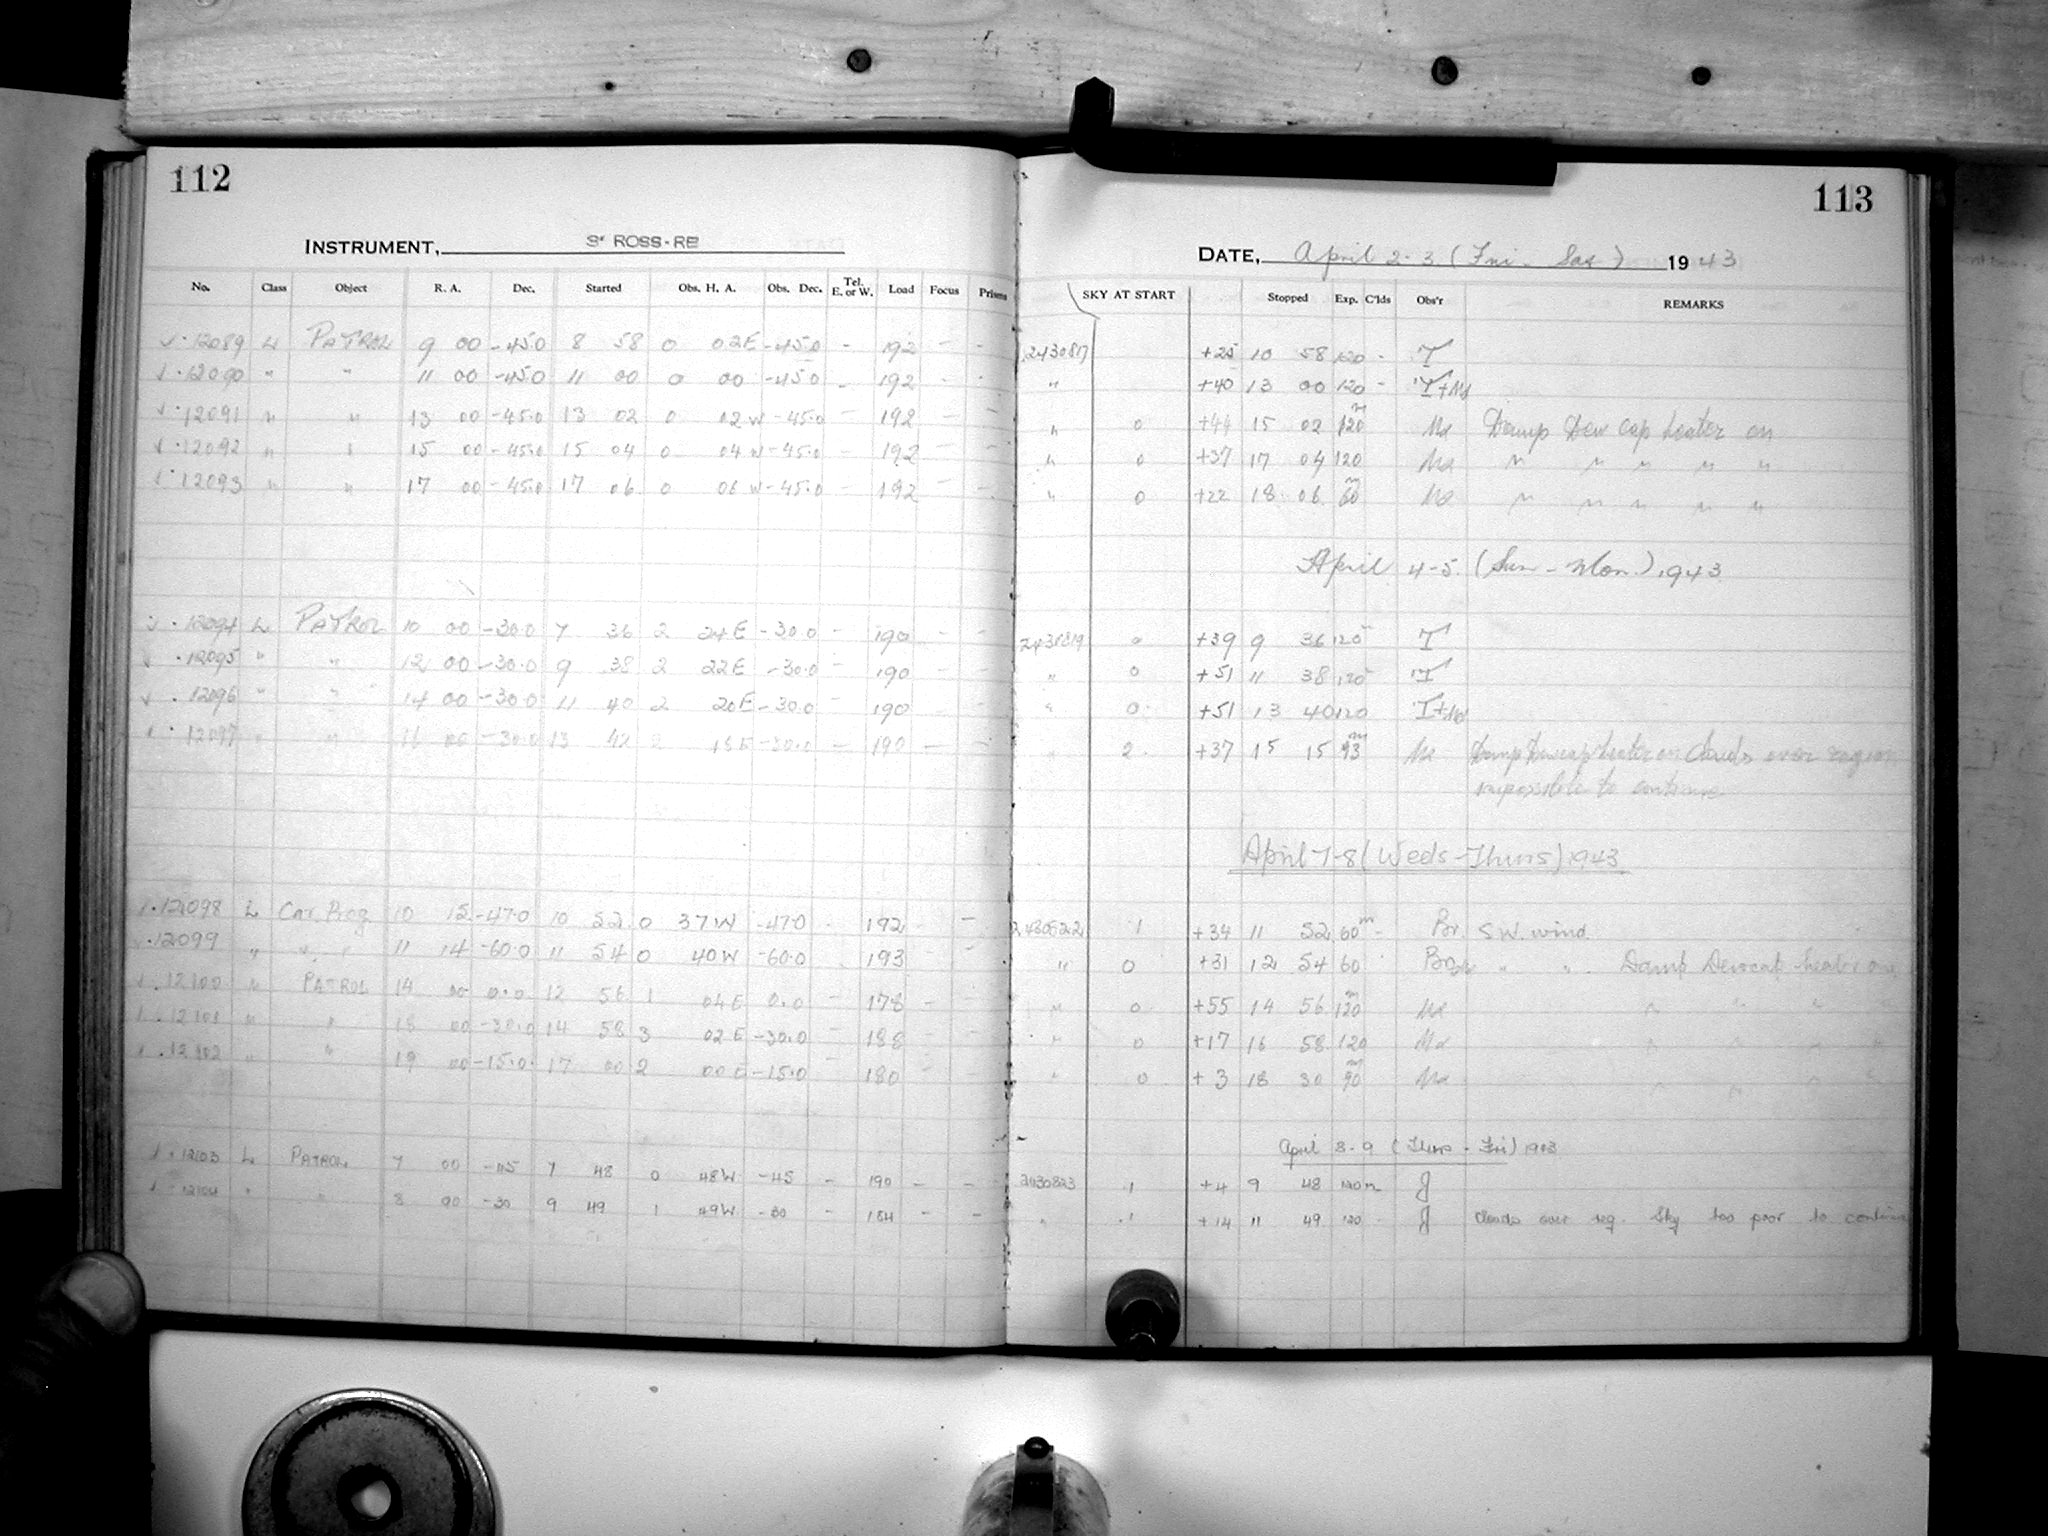 112
INSTRUMENT, 3" ROSS-RB
No. Class Object R. A. Dec. Started Obs. H. A. Obs. Dec. Tel. E. or W. Load Focus Prisms
12089 L PATROL 9 00 -45.0 8 58 0 02E -45.0 - 192 - -
12090 " " 11 00 -45.0 11 00 0 00 -45.0 - 192 - -
12091 " " 13 00 -45.0 13 02 0 02W -45.0 - 192 - -
12092 " " 15 00 -45.0 15 04 0 04W -45.0 - 192 - -
12093 " " 17 00 -45.0 17 06 0 06W -45.0 - 192 - -
12094 L PATROL 10 00 -30.0 7 36 2 24E -30.0 - 190 - -
12095 " " 12 00 -30.0 9 38 2 22E -30.0 - 190 - -
12096 " " 14 00 -30.0 11 40 2 20E -30.0 - 190 - -
12097 " " 16 00 -30.0 13 42 2 18E -30.0 - 190 - -
12098 L Car. Prog 10 15 -47.0 10 52 0 37W -47.0 192 - -
12099 " " " 11 14 -60.0 11 54 0 40W -60.0 193 - -
12100 " PATROL 14 00 0.0 12 56 1 04E 0.0 - 178 - -
12101 " " 18 00 -30.0 14 58 3 02E -30.0 - 188 - -
12102 " " 19 00 -15.0 17 00 2 00E -15.0 - 180 - -
12103 L PATROL 7 00 -45 7 48 0 48W -45 - 190 - -
12104 " " 8 00 -30 9 49 1 49W -30 - 184 - -
113
DATE, April 2-3 (Fri - Sat) 1943
SKY AT START Stopped Exp. C'lds Obs'r REMARKS
2430817 +25 10 58 120 - T
" +40 13 00 120 - T+Ms
" 0 +44 15 02 120m Ms Damp Dew cap heater on
" 0 +37 17 04 120 Ms " " " " "
" 0 +22 18 06 60m Ms " " " " "
April 4-5 (Sun - Mon.) 1943
2430819 0 +39 9 36 120 T
" 0 +51 11 38 120 T
" 0 +51 13 40 120 T+Ms
" 2 +37 15 15 93m Ms Damp Dewcap heater on Clouds over region
impossible to continue
April 7-8 (Weds - Thurs) 1943
2430822 1 +34 11 52 60m - Br. S.W. wind.
" 0 +31 12 54 60 " " Damp Dewcap heater on
" 0 +55 14 56 120m Ms " " " "
" 0 +17 16 58 120 Ms " " " "
" 0 +3 18 30 90m Ms " " " "
April 8-9 (Thurs - Fri) 1943
2430823 1 +4 9 48 120m J
" 1 +14 11 49 120 J Clouds over reg. Sky too poor to continue